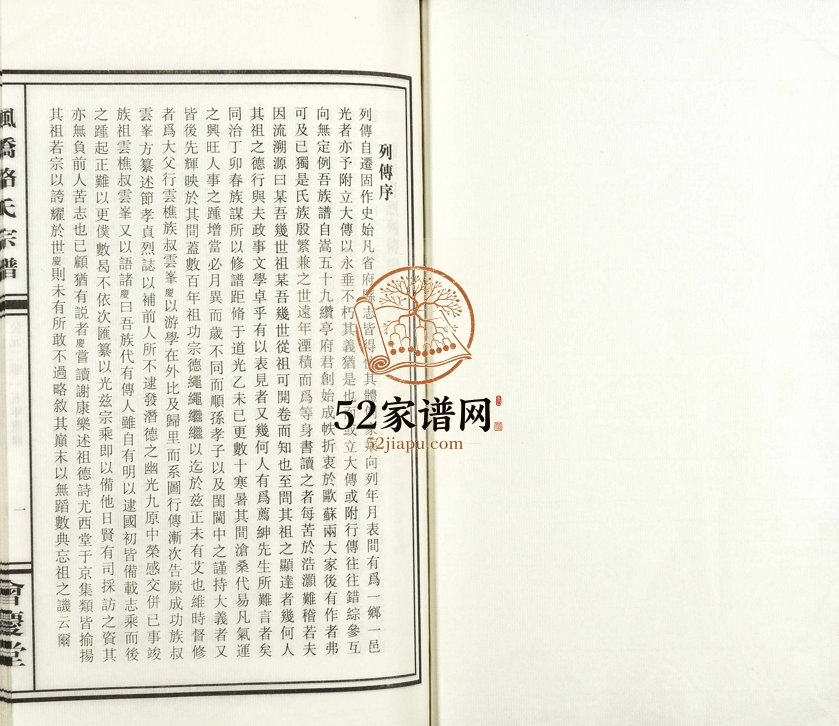 列傳序
列傳自遷固作史始凡省府縣志皆得其體家乘向列年月表間有爲一鄉一邑
光者亦予附立大傳以永垂不朽其義猶是也或立大傳或附行傳往往錯綜參互
向無定例吾族譜自嵩五十九纘亭府君創始成帙折衷於歐蘇兩大家後有作者弗
可及已獨是氏族殷繁兼之世遠年湮積而爲等身書讀之者每苦於浩灝難稽若夫
因流溯源曰某吾幾世祖某吾幾世從祖可開卷而知也至問其祖之顯達者幾何人
其祖之德行與夫政事文學卓乎有以表見者又幾何人有爲薦紳先生所難言者矣
同治丁卯春族謀所以修譜距脩于道光乙未已更數十寒暑其間滄桑代易凡氣運
之興旺人事之踵增當必月異而歲不同而順孫孝子以及閨闥中之謹持大義者又
皆後先輝映於其間蓋數百年祖功宗德繩繩繼繼以迄於兹正未有艾也維時督修
者爲大父行雲樵族叔雲峯慶以游學在外比及歸里而系圖行傳漸次告厥成功族叔
雲峯方纂述節孝貞烈誌以補前人所不逮發潛德之幽光九原中榮感交併已事竣
族祖雲樵叔雲峯又以語諸慶曰吾族代有傳人雖自有明以逮國初皆備載志乘而後
之踵起正難以更僕數曷不依次匯纂以光兹宗乘即以備他日賢有司採訪之資其
亦無負前人苦志也已顧猶有説者慶嘗讀謝康樂述祖德詩尤西堂于京集類皆揄揚
其祖若宗以誇耀於世慶則未有所敢不過略敘其巔末以無蹈數典忘祖之譏云爾
楓橋駱氏宗譜
一
會慶堂
52家谱网
52jiapu.com